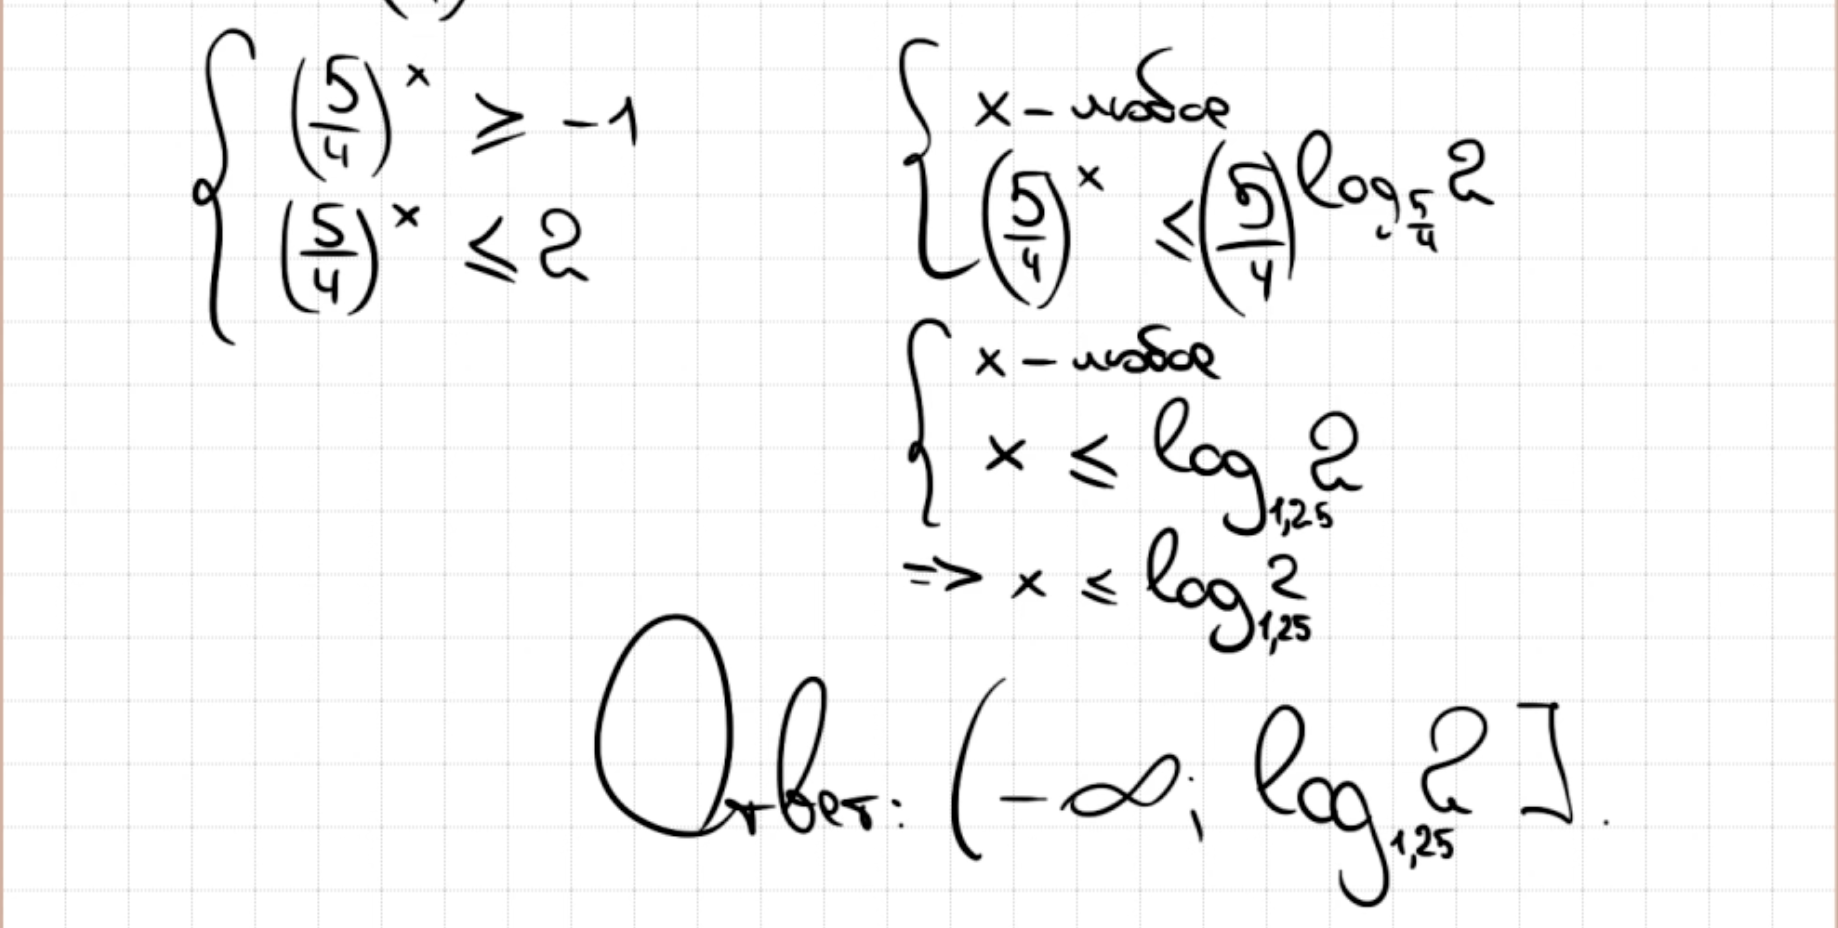 (5/4)^x ≥ -1
(5/4)^x ≤ 2
x - любое
(5/4)^x ≤ (5/4)^(log_(5/4) 2)
x - любое
x ≤ log_(1,25) 2
=> x ≤ log_(1,25) 2
Ответ: (-∞; log_(1,25) 2].